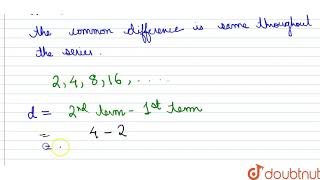 the common difference is same throughout
the series.
2, 4, 8, 16, . . . .
d = 2nd term - 1st term
= 4 - 2
= .
doubtnut